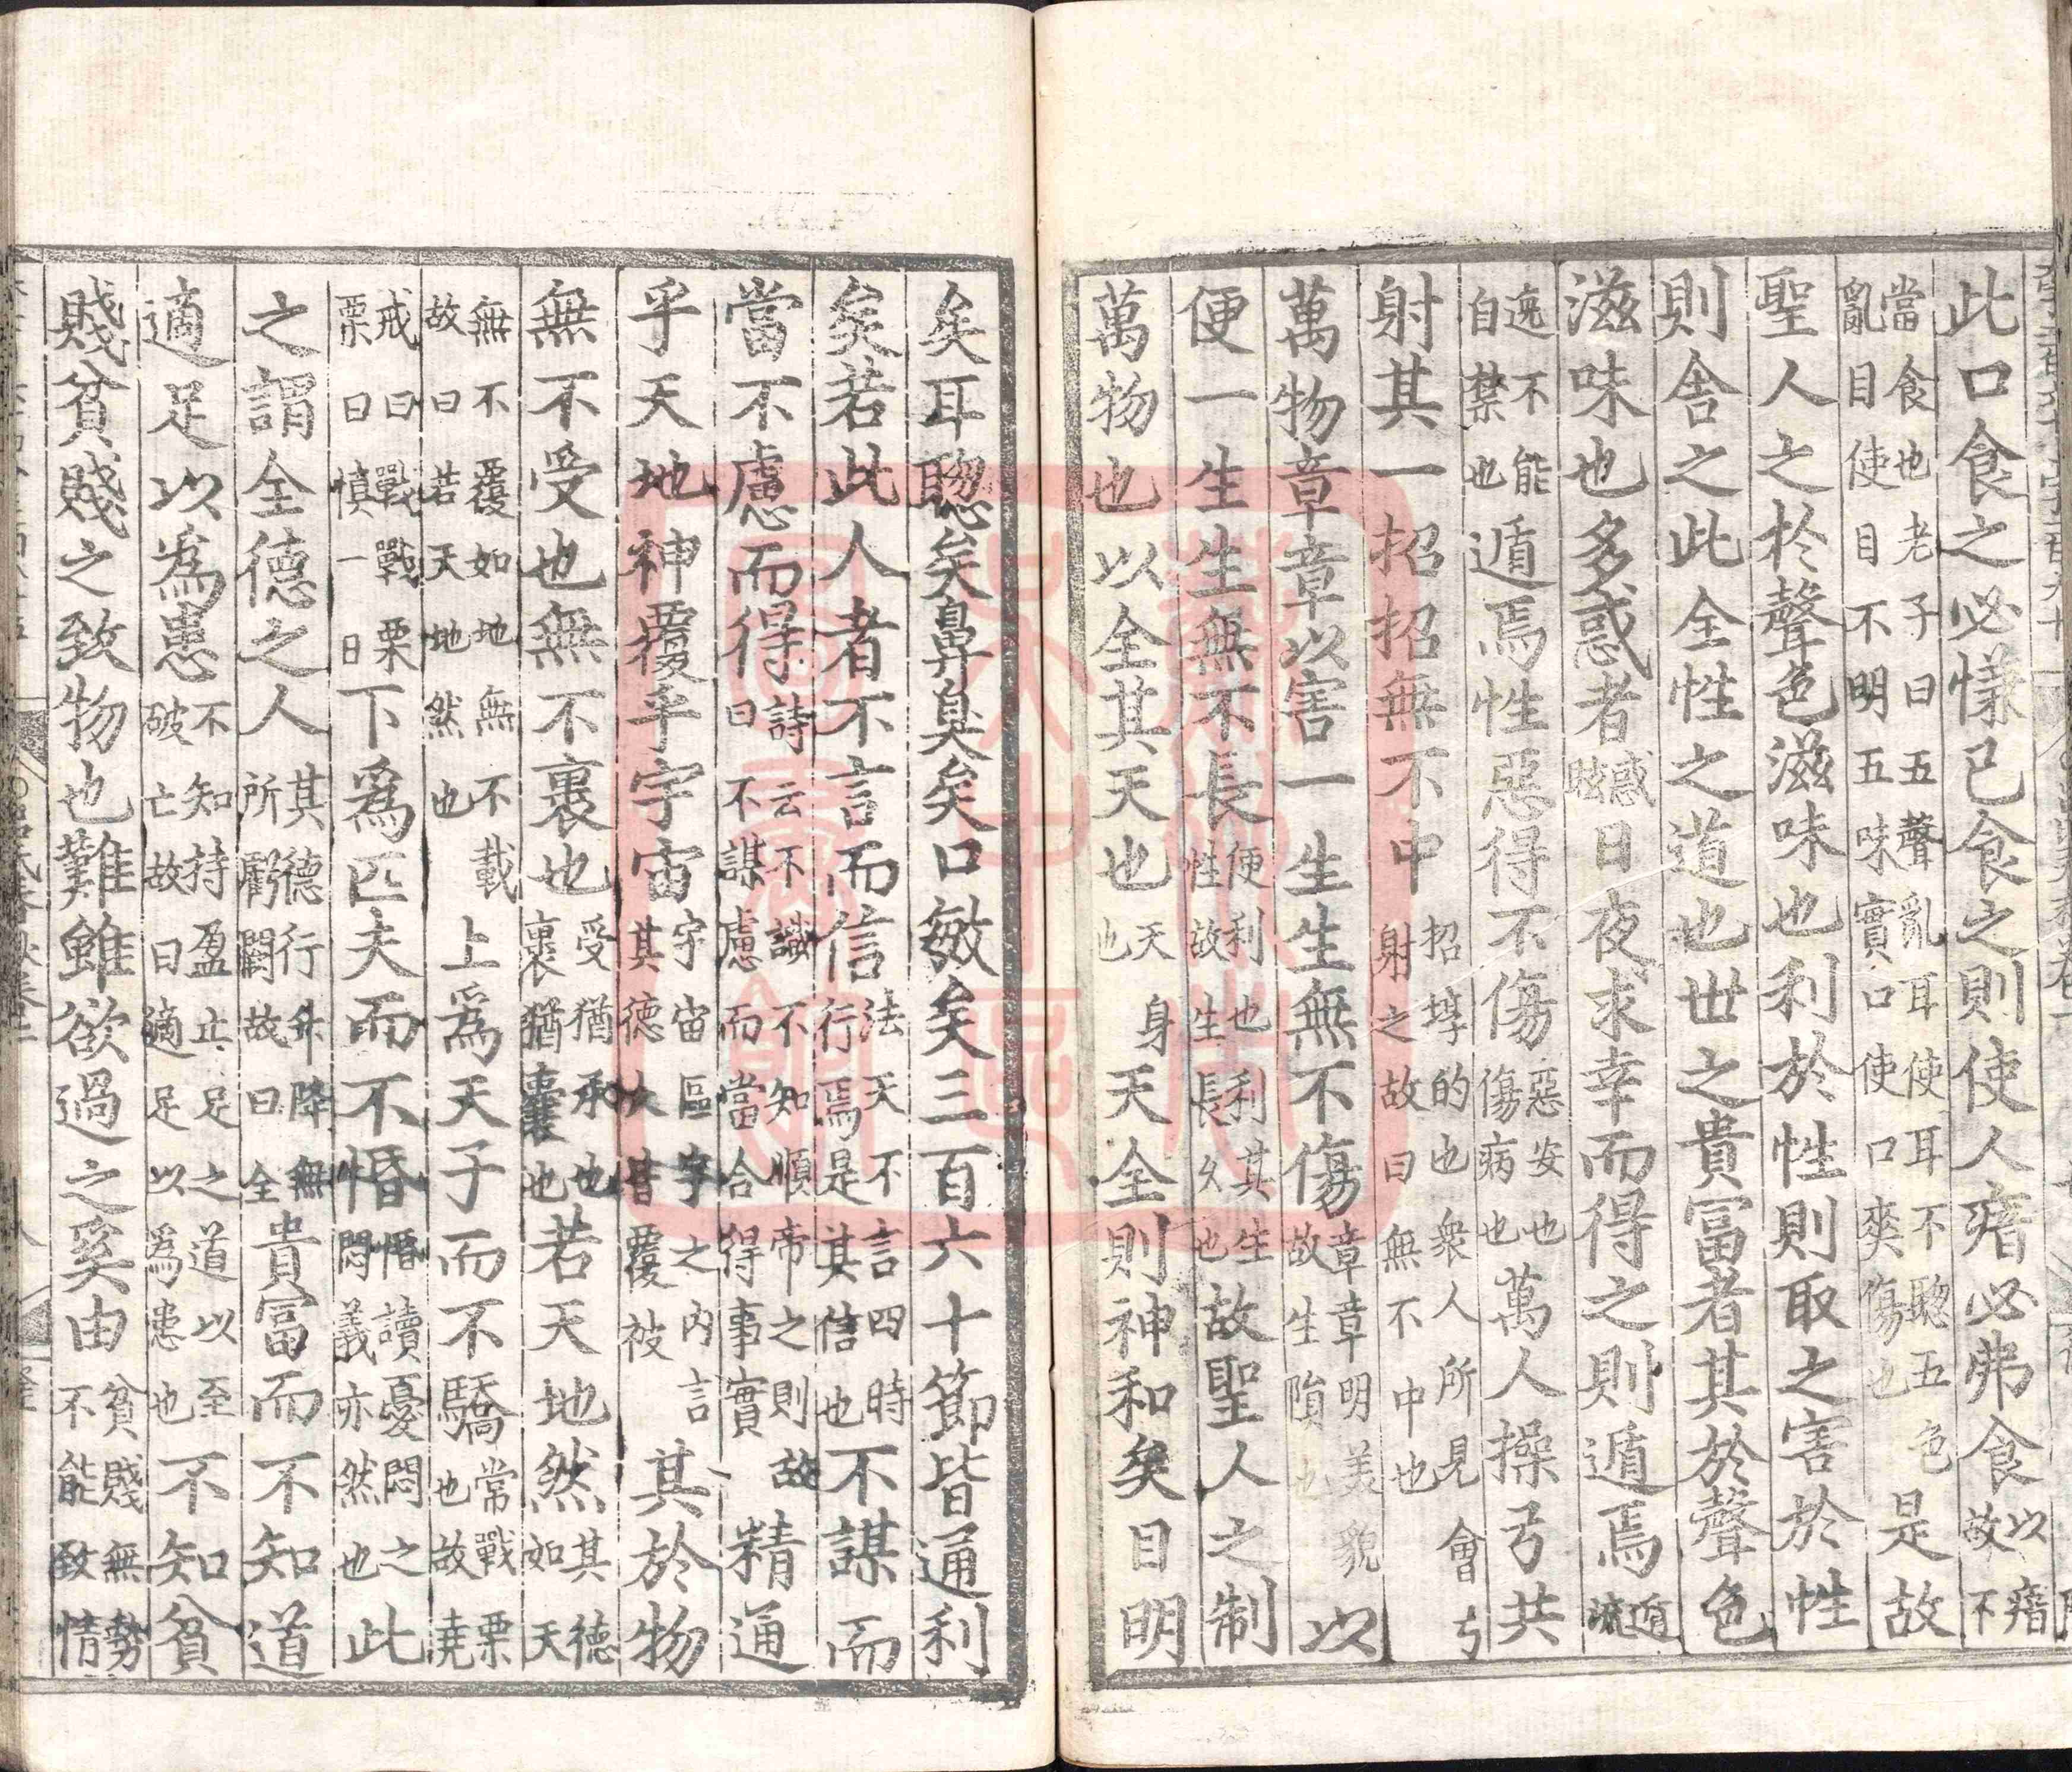 此口食之必慊已食之則使人瘖必弗食以瘖故不
當食也老子曰五聲亂耳使耳不聦五色亂目使目不明五味實口使口爽傷也是故
聖人之於聲色滋味也利於性則取之害於性
則舍之此全性之道也世之貴富者其於聲色
滋味也多惑者惑眩日夜求幸而得之則遁焉遁流
逸不能自禁也遁焉性惡得不傷惡安也傷病也萬人操弓共
射其一招招無不中招埻的也衆人所見會弓射之故曰無不中也
萬物章章以害一生生無不傷章章明美貌故生隕也以
便一生生無不長便利也利其生性故生長久也故聖人之制
萬物也以全其天也天身也天全則神和矣目明
矣耳聦矣鼻臭矣口敏矣三百六十節皆通利
矣若此人者不言而信法天不言四時行焉是其信也不謀而
當不慮而得詩云不識不知順帝之則故曰不謀慮而當合得事實精通
乎天地神覆乎宇宙宇宙區宇之内言其德大皆覆被其於物
無不受也無不裹也受猶承也裹猶囊也若天地然其德如天
無不覆如地無不載故曰若天地然也上爲天子而不驕常戰栗也故堯
戒曰戰戰栗栗曰慎一日下爲匹夫而不惽惽讀憂悶之悶義亦然也此
之謂全德之人其德行升降無所虧闕故曰全貴富而不知道
適足以爲患不知持盈止足之道以至破亡故曰適足以爲患也不知貧
賤貧賤之致物也難雖欲過之奚由貧賤無勢不能致情